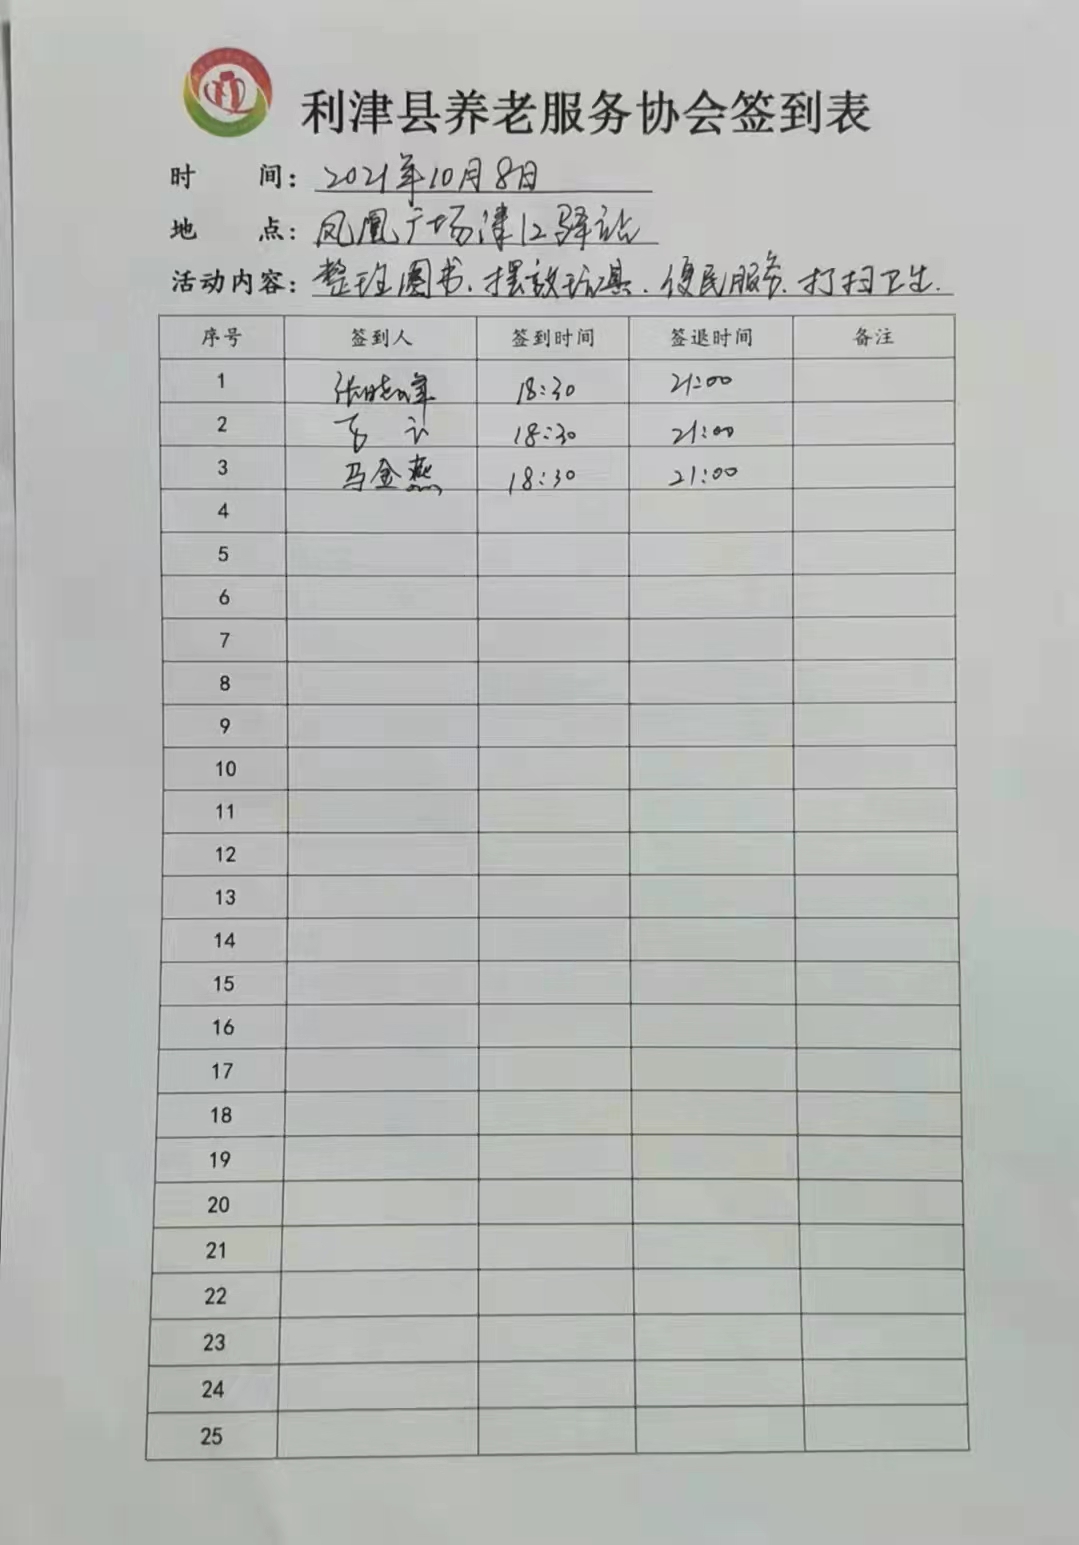 利津县养老服务协会签到表
时 间：2021年10月8日
地 点：凤凰广场津12驿站
活动内容：整理图书、摆放玩具、便民服务、打扫卫生.
序号 签到人 签到时间 签退时间 备注
1 张晓军 18:30 21:00
2 18:30 21:00
3 马金燕 18:30 21:00
4
5
6
7
8
9
10
11
12
13
14
15
16
17
18
19
20
21
22
23
24
25